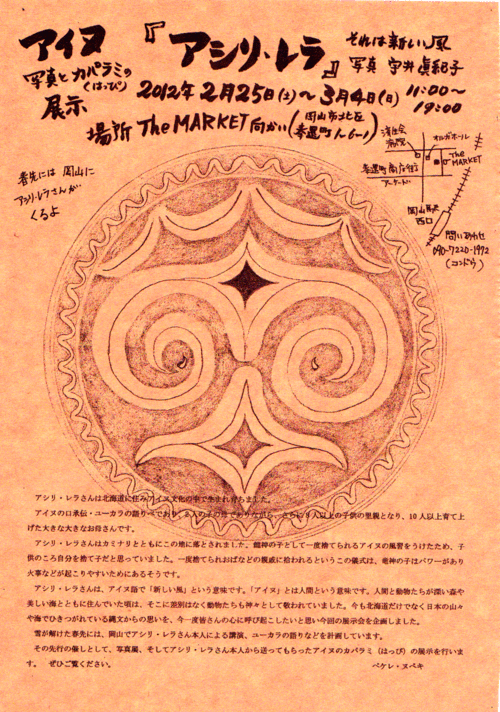 アイヌ『アシリ・レラ』それは新しい風
写真とカパラミの
(はっぴ)
展示
写真 宇井眞紀子
2012年2月25日(土)〜3月4日(日) 11:00〜
19:00
場所 The MARKET 向かい(岡山市北区
奉還町1-6-1)
春先には 岡山に
アシリ・レラさんが
くるよ
済生会
病院
オルガホール
The
MARKET
奉還町商店街
アーケード
岡山駅
西口
問い合わせ
090-7220-1972
(コンドウ)
アシリ・レラさんは北海道に住みアイヌ文化の中で生まれ育ちました。
アイヌの口承伝・ユーカラの語りべであり、
の子供の里親となり、10人以上育て上
げた大きな大きなお母さんです。
アシリ・レラさんはカミナリとともにこの地に落とされました。龍神の子として一度捨てられるアイヌの風習をうけたため、子
供のころ自分を捨て子だと思っていました。一度捨てられおばなどの親戚に拾われるというこの儀式は、竜神の子はパワーがあり
火事などが起こりやすいためにあるそうです。
アシリ・レラさんは、アイヌ語で「新しい風」という意味です。「アイヌ」とは人間という意味です。人間と動物たちが深い森や
美しい海とともに住んでいた頃は、そこに差別はなく動物たちも神々として敬われていました。今も北海道だけでなく日本の山々
や海でひきつがれている縄文からの思いを、今一度皆さんの心に呼び起こしたいと思い今回の展示会を企画しました。
雪が解けた春先には、岡山でアシリ・レラさん本人による講演、ユーカラの語りなどを計画しています。
その先行の儀として、写真展、そしてアシリ・レラさん本人から送ってもらったアイヌのカパラミ(はっぴ)の展示を行いま
す。 ぜひご覧ください。 ペケレ・ヌペキ